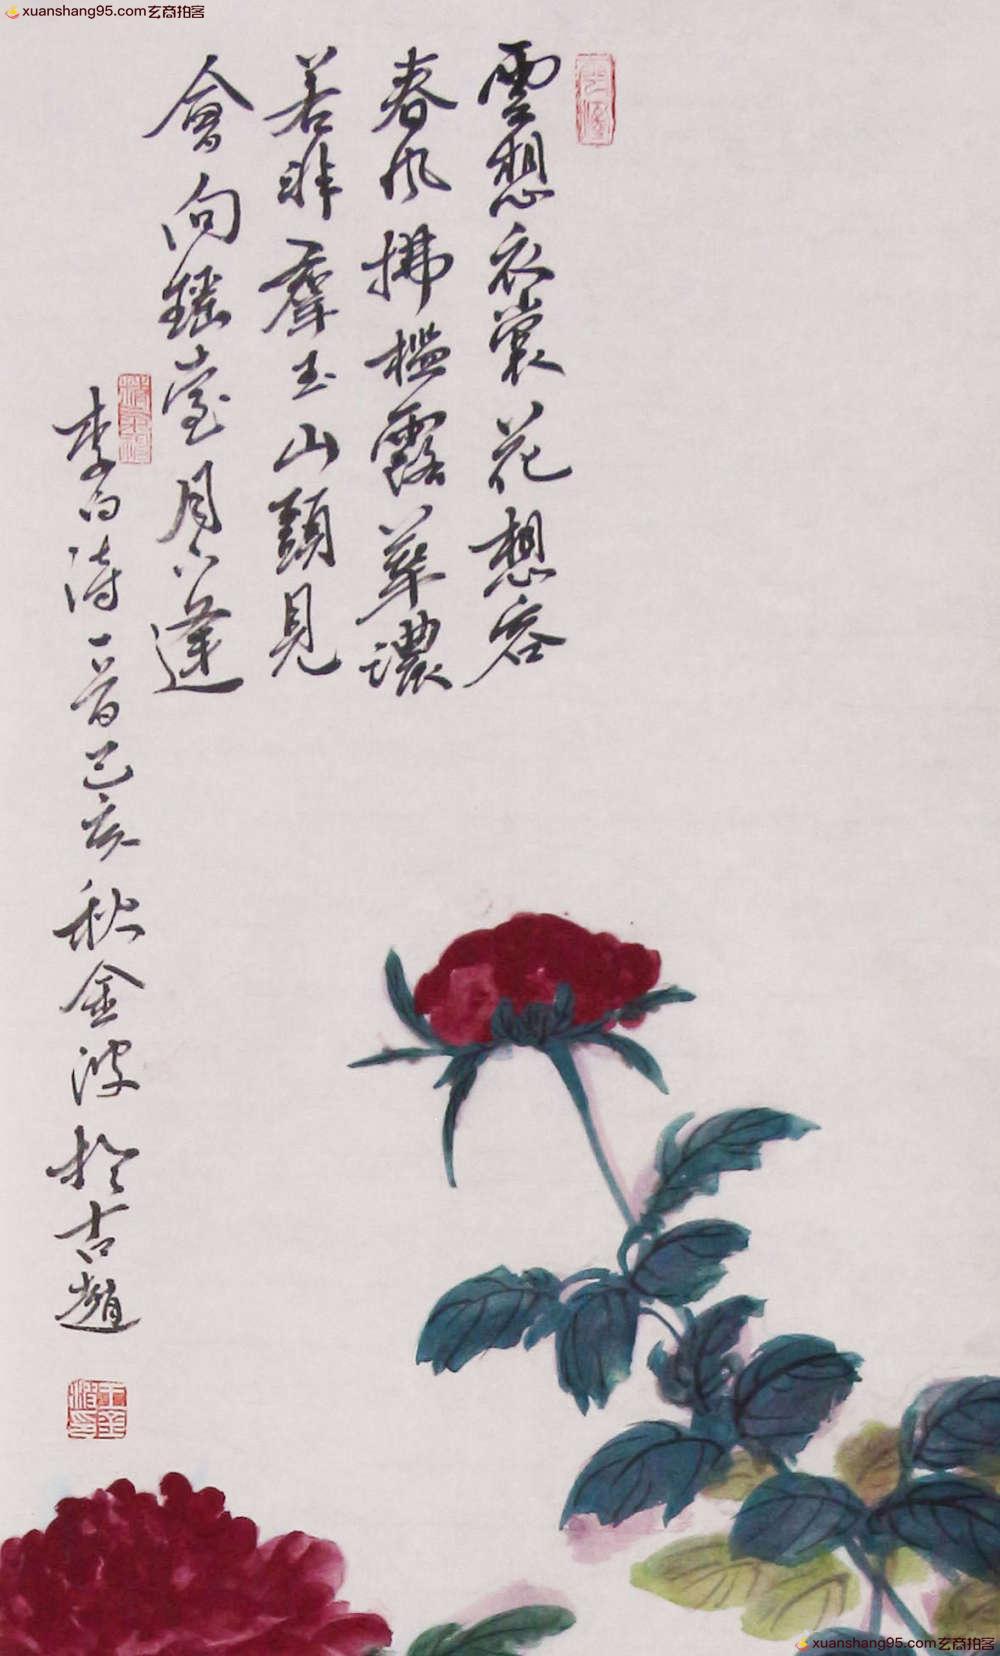 xuanshang95.com玄商拍客
雲想衣裳花想容
春風拂檻露華濃
若非羣玉山頭見
會向瑤臺月下逢
李白詩一首己亥秋金波於古趙
xuanshang95.com玄商拍客